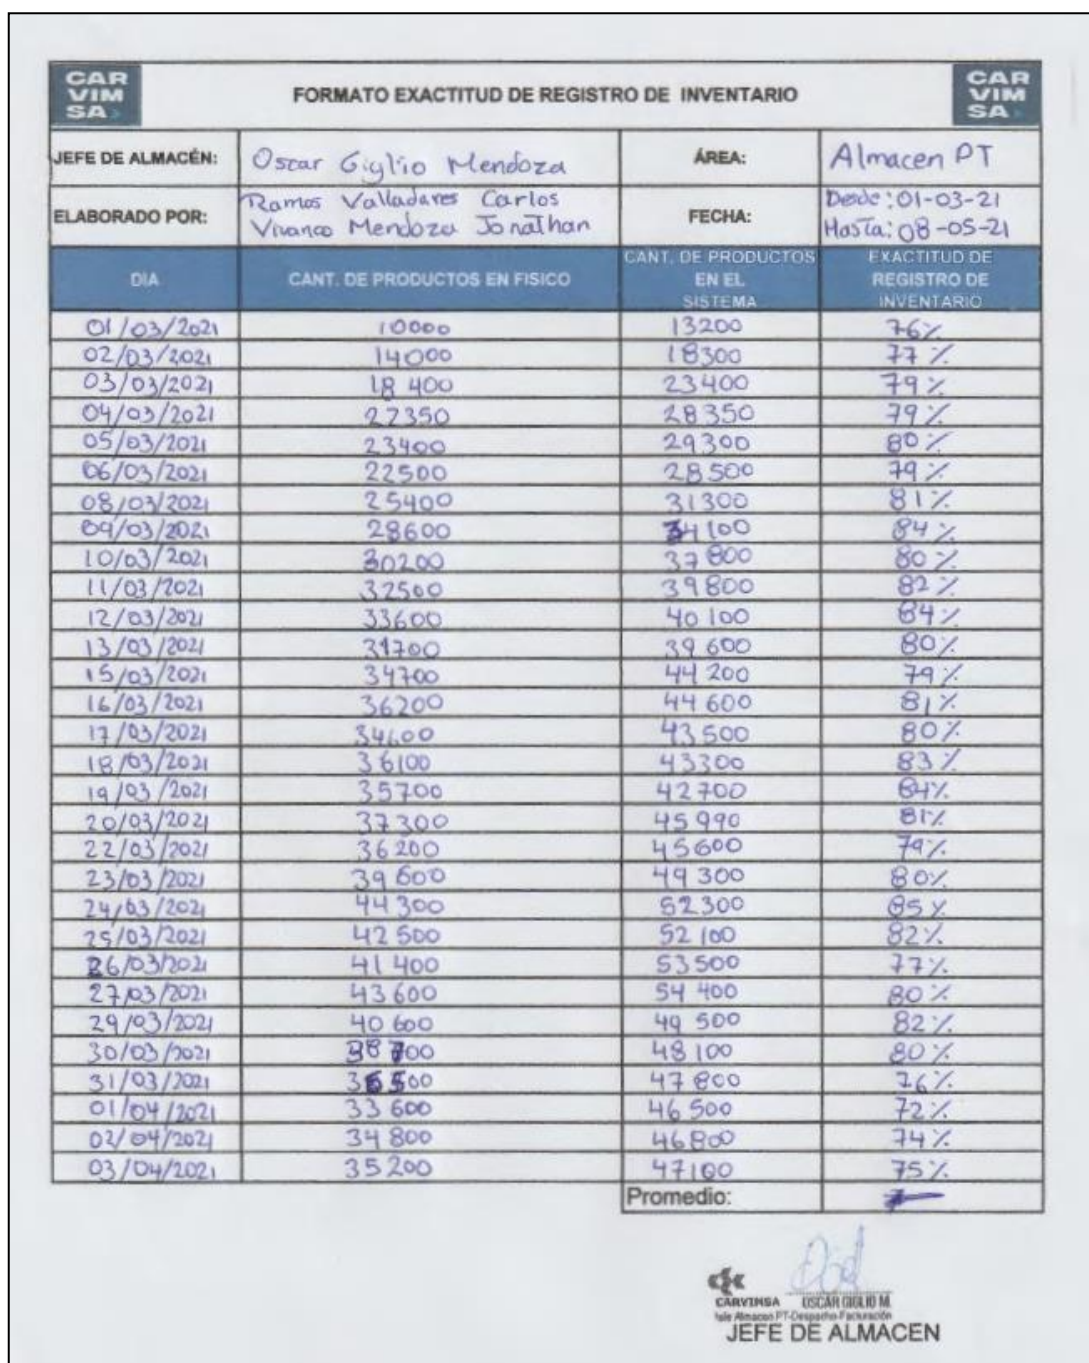 CAR
VIM
SA
FORMATO EXACTITUD DE REGISTRO DE INVENTARIO
CAR
VIM
SA
JEFE DE ALMACÉN: Oscar Giglio Mendoza ÁREA: Almacen PT
ELABORADO POR: Ramos Valladares Carlos
Vivanco Mendoza Jonathan
FECHA: Desde: 01-03-21
Hasta: 08-05-21
DIA CANT. DE PRODUCTOS EN FISICO CANT. DE PRODUCTOS EN EL SISTEMA EXACTITUD DE REGISTRO DE INVENTARIO
01/03/2021 10000 13200 76%
02/03/2021 14000 18300 77%
03/03/2021 18 400 23400 79%
04/03/2021 22350 28350 79%
05/03/2021 23400 29300 80%
06/03/2021 22500 28500 79%
08/03/2021 25400 31300 81%
09/03/2021 28600 34100 84%
10/03/2021 30200 37800 80%
11/03/2021 32500 39800 82%
12/03/2021 33600 40100 84%
13/03/2021 31700 39600 80%
15/03/2021 34700 44200 79%
16/03/2021 36200 44600 81%
17/03/2021 34600 43500 80%
18/03/2021 36100 43300 83%
19/03/2021 35700 42700 84%
20/03/2021 37300 45990 81%
22/03/2021 36200 45600 79%
23/03/2021 39600 49300 80%
24/03/2021 44300 52300 85%
25/03/2021 42500 52100 82%
26/03/2021 41400 53500 77%
27/03/2021 43600 54400 80%
29/03/2021 40600 49500 82%
30/03/2021 38700 48100 80%
31/03/2021 36500 47800 76%
01/04/2021 33600 46500 72%
02/04/2021 34800 46800 74%
03/04/2021 35200 47100 75%
Promedio:
CARVIMSA OSCAR GIGLIO M.
Jefe Almacen PT-Despacho-Facturación
JEFE DE ALMACEN